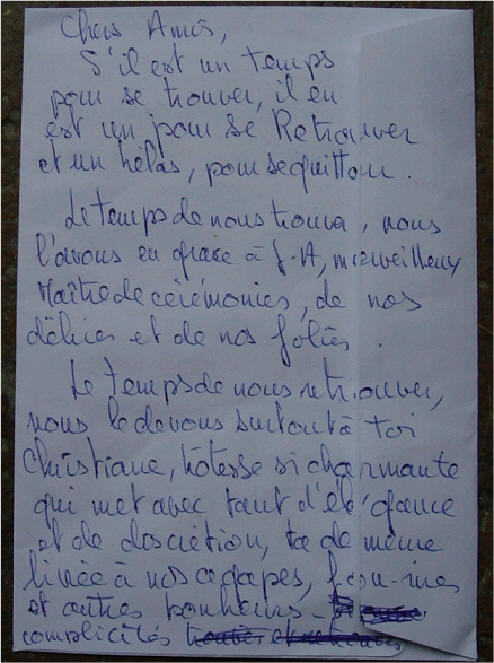 Chers Amis,
S'il est un temps
pour se trouver, il en
est un pour se Retrouver
et un hélas, pour se quitter.
Le temps de nous trouver, nous
l'avons eu grâce à J-A, merveilleux
Maître de cérémonies, de nos
délires et de nos folies.
Le temps de nous retrouver,
nous le devons surtout à toi
Christiane, hôtesse si charmante
qui met avec tant d'élégance
et de discrétion, ta de même
livrée à nos agapes,
et autres bonheurs
complicités